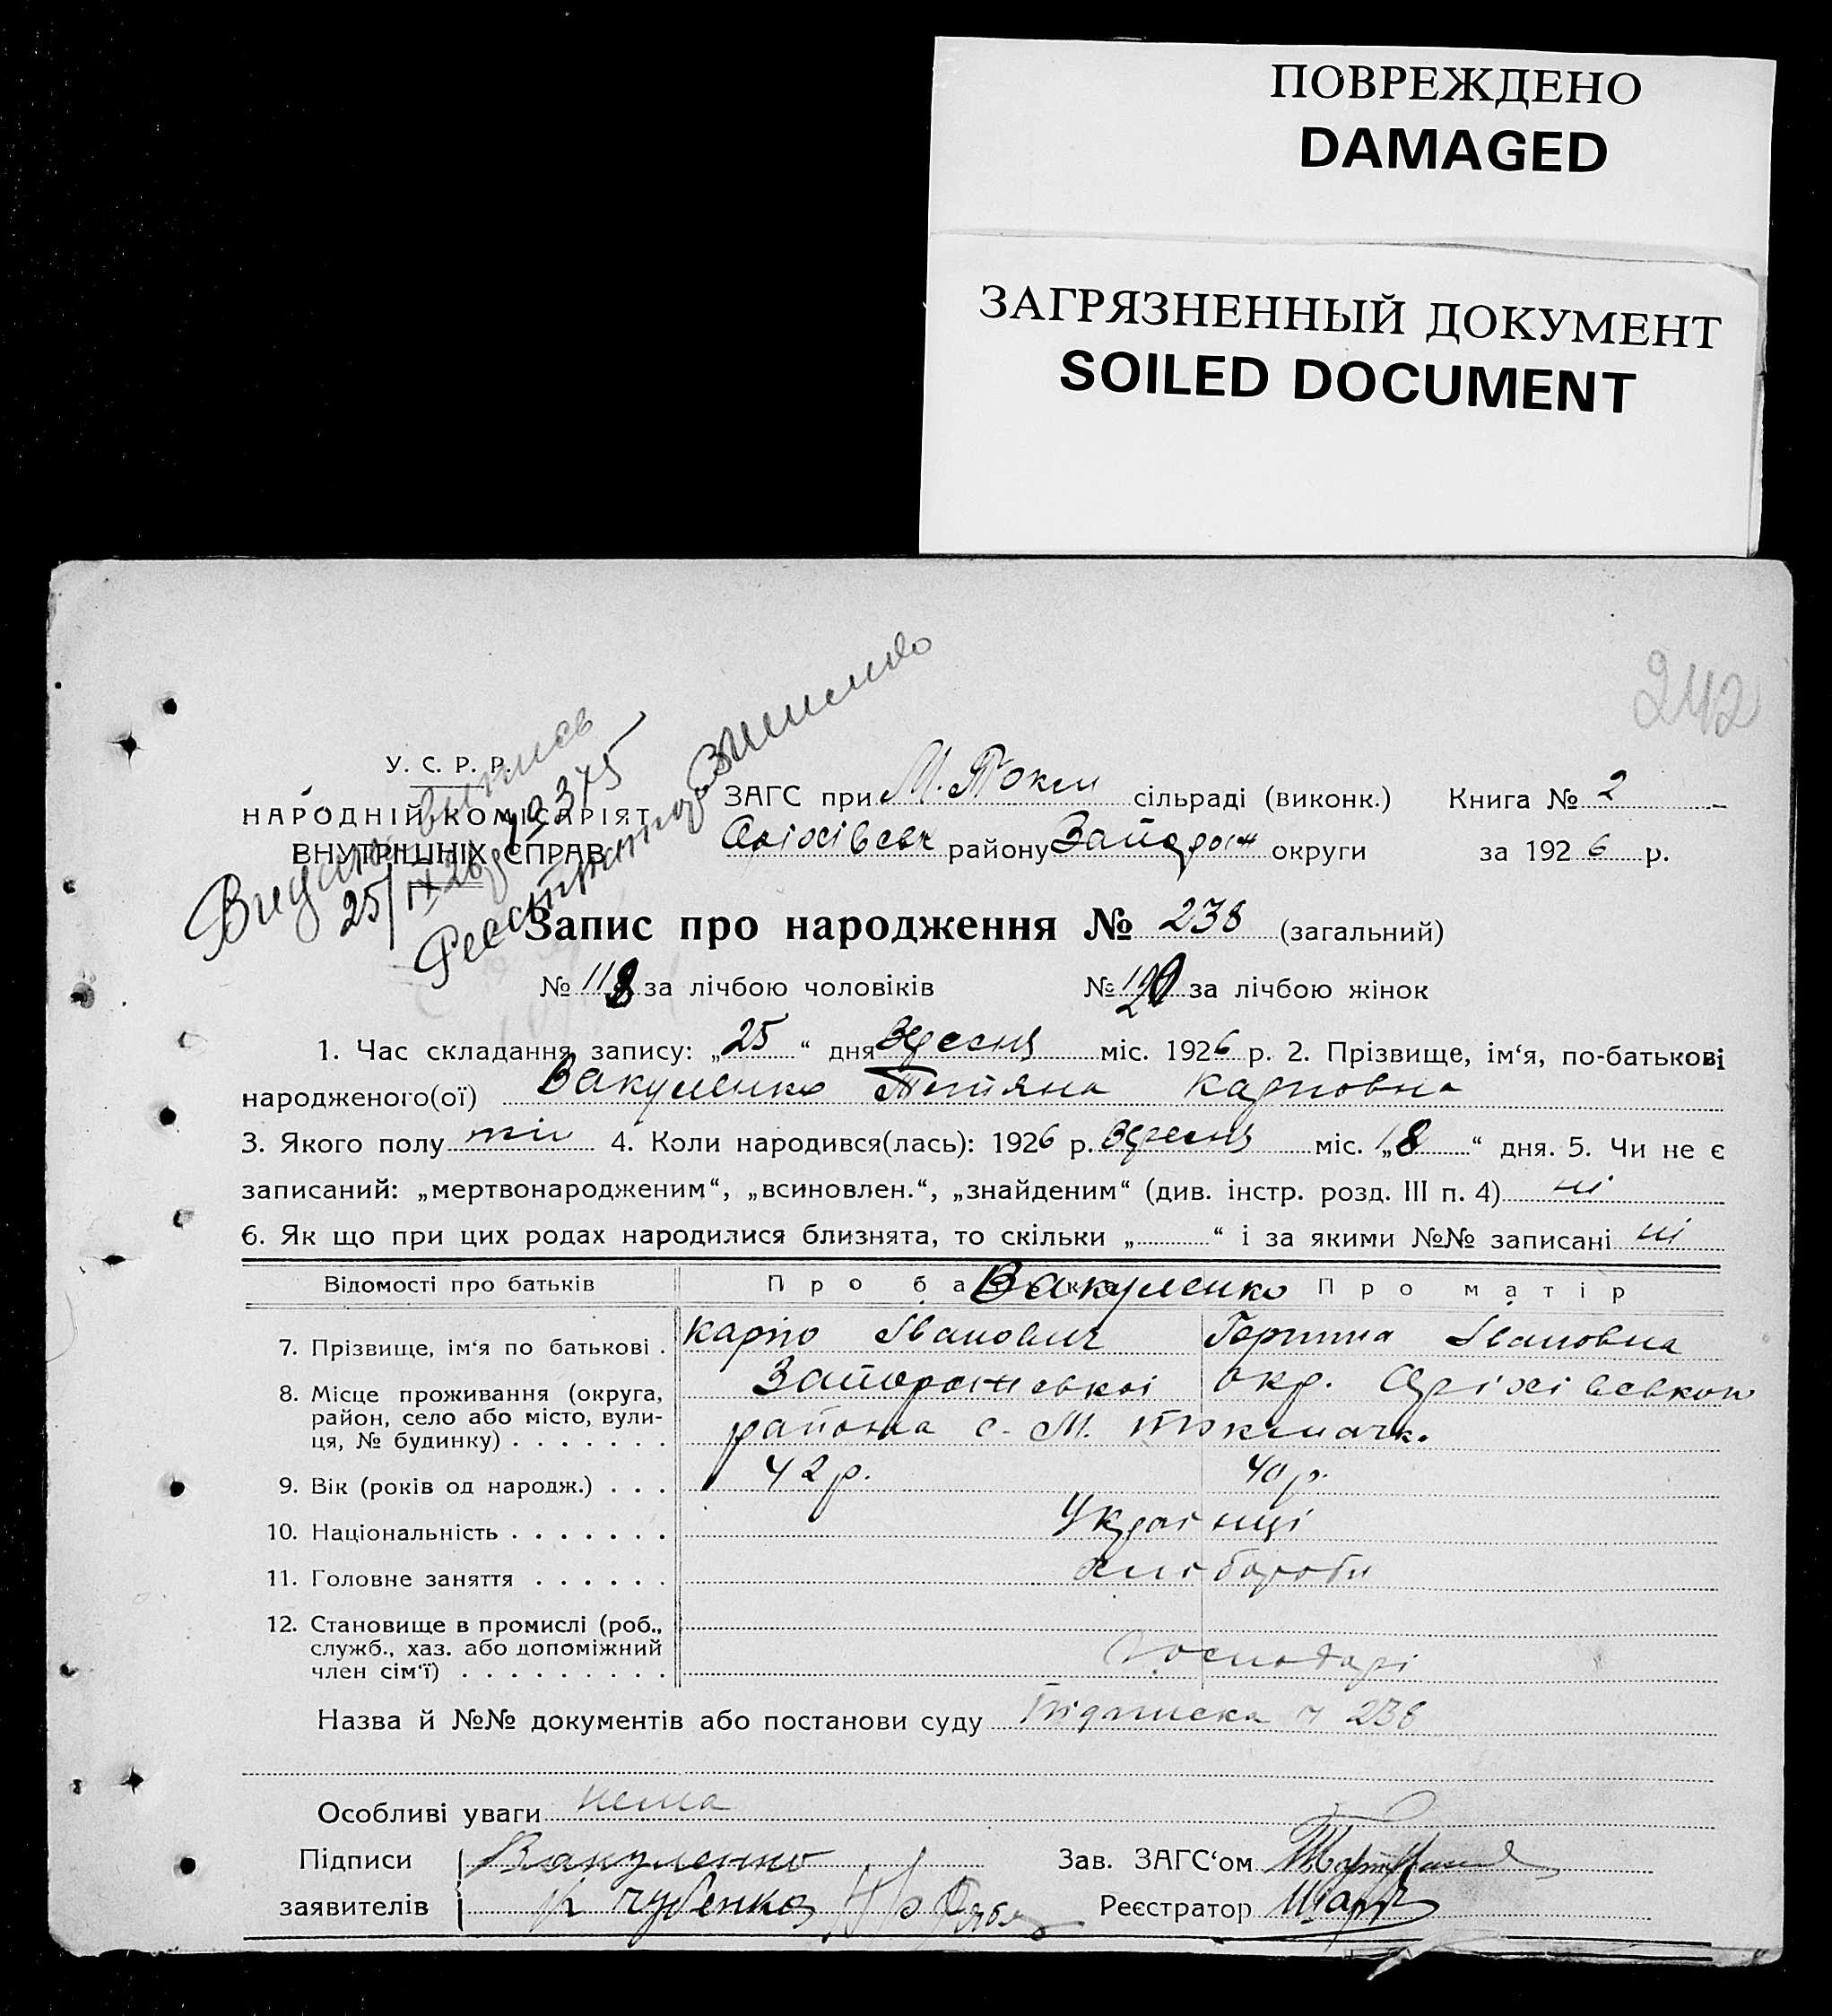 ПОВРЕЖДЕНО
DAMAGED
ЗАГРЯЗНЕННЫЙ ДОКУМЕНТ
SOILED DOCUMENT
242
У. С. Р. Р.
НАРОДНІЙ КОМІСАРІЯТ
ВНУТРІШНІХ СПРАВ
выпись
25/IX 26 375
ЗАГС при М. Токм сільраді (виконк.) Книга № 2
Оріхівськ району Запорож округи за 1926 р.
Запис про народження № 238 (загальний)
№ 118 за лічбою чоловіків № 120 за лічбою жінок
1. Час складання запису: „25“ дня Вересня міс. 1926 р. 2. Прізвище, ім‘я, по-батькові
народженого(ої) Вакуленко Тетяна Карповна
3. Якого полу жін 4. Коли народився(лась): 1926 р. Вересня міс. „18“ дня. 5. Чи не є
записаний: „мертвонародженим“, „всиновлен.“, „знайденим“ (див. інстр. розд. III п. 4) ні
6. Як що при цих родах народилися близнята, то скільки „ “ і за якими №№ записані ні
Відомості про батьків Про батька Вакуленко Про матір
7. Прізвище, ім‘я по батькові . Карпо Іванович Горпина Івановна
8. Місце проживання (округа, Запорожської окр. Оріхівського
район, село або місто, вули- района с. М. Токмачк.
ця, № будинку) . . . . . . .
9. Вік (років од народж.) . . . 42 р. 40 р.
10. Національність . . . . . . . Українці
11. Головне заняття . . . . . . хлібороби
12. Становище в промислі (роб.,
служб., хаз. або допоміжний Господарі
член сім‘ї) . . . . . . . . .
Назва й №№ документів або постанови суду Підписка ч 238
Особливі уваги нема
Підписи Вакуленко Зав. ЗАГС‘ом
заявителів К Чубенко Реєстратор